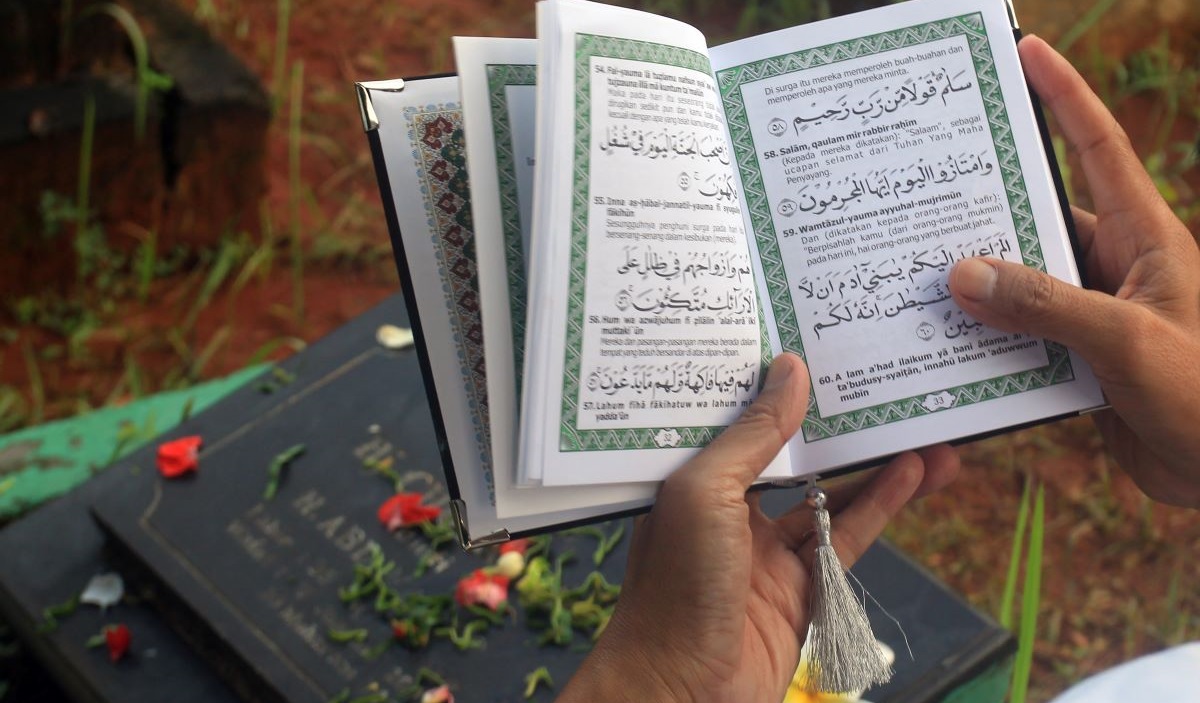 54. Fai-yauma lā tuẓlamu nafsun
tujzauna illā mā kuntum ta'malūn
Maka pada hari itu seseorang tidak
dirugikan sedikit pun dan kamu tidak
kecuali dengan apa yang telah kamu kerjakan.
الْجَنَّةِ الْيَوْمَ فِيْ شُغُلٍ
٥٥
55. Inna aṣ-ḥābal-jannatil-yauma fī syugulin
fākihūn
Sesungguhnya penghuni surga pada hari itu
bersenang-senang dalam kesibukan (mereka).
هُمْ وَاَزْوَاجُهُمْ فِيْ ظِلٰلٍ عَلَى
الْاَرَاۤىِٕكِ مُتَّكِـُٔوْنَ ٥٦
56. Hum wa azwājuhum fī ẓilālin 'alal-arā'iki
muttaki'ūn
Mereka dan pasangan-pasangan mereka berada dalam
tempat yang teduh bersandar di atas dipan-dipan.
لَهُمْ فِيْهَا فَاكِهَةٌ وَّلَهُمْ مَّا يَدَّعُوْنَ ٥٧
57. Lahum fīhā fākihatuw wa lahum mā
yadda'ūn
32
Di surga itu mereka memperoleh buah-buahan dan
memperoleh apa yang mereka minta.
سَلٰمٌ قَوْلًا مِّنْ رَّبٍّ رَّحِيْمٍ ٥٨
58. Salām, qaulam mir rabbir raḥīm
(Kepada mereka dikatakan): "Salaam", sebagai
ucapan selamat dari Tuhan Yang Maha
Penyayang.
وَامْتَازُوا الْيَوْمَ اَيُّهَا الْمُجْرِمُوْنَ ٥٩
59. Wamtāzul-yauma ayyuhal-mujrimūn
Dan (dikatakan kepada orang-orang kafir):
"Berpisahlah kamu (dari orang-orang mukmin)
pada hari ini, hai orang-orang yang berbuat jahat.
اَلَمْ اَعْهَدْ اِلَيْكُمْ يٰبَنِيْٓ اٰدَمَ اَنْ لَّا
الشَّيْطٰنَ اِنَّهٗ لَكُمْ
٦٠
60. A lam a'had ilaikum yā banī ādama al
ta'budusy-syaiṭān, innahū lakum 'aduwwum
mubīn
33
H. ABD